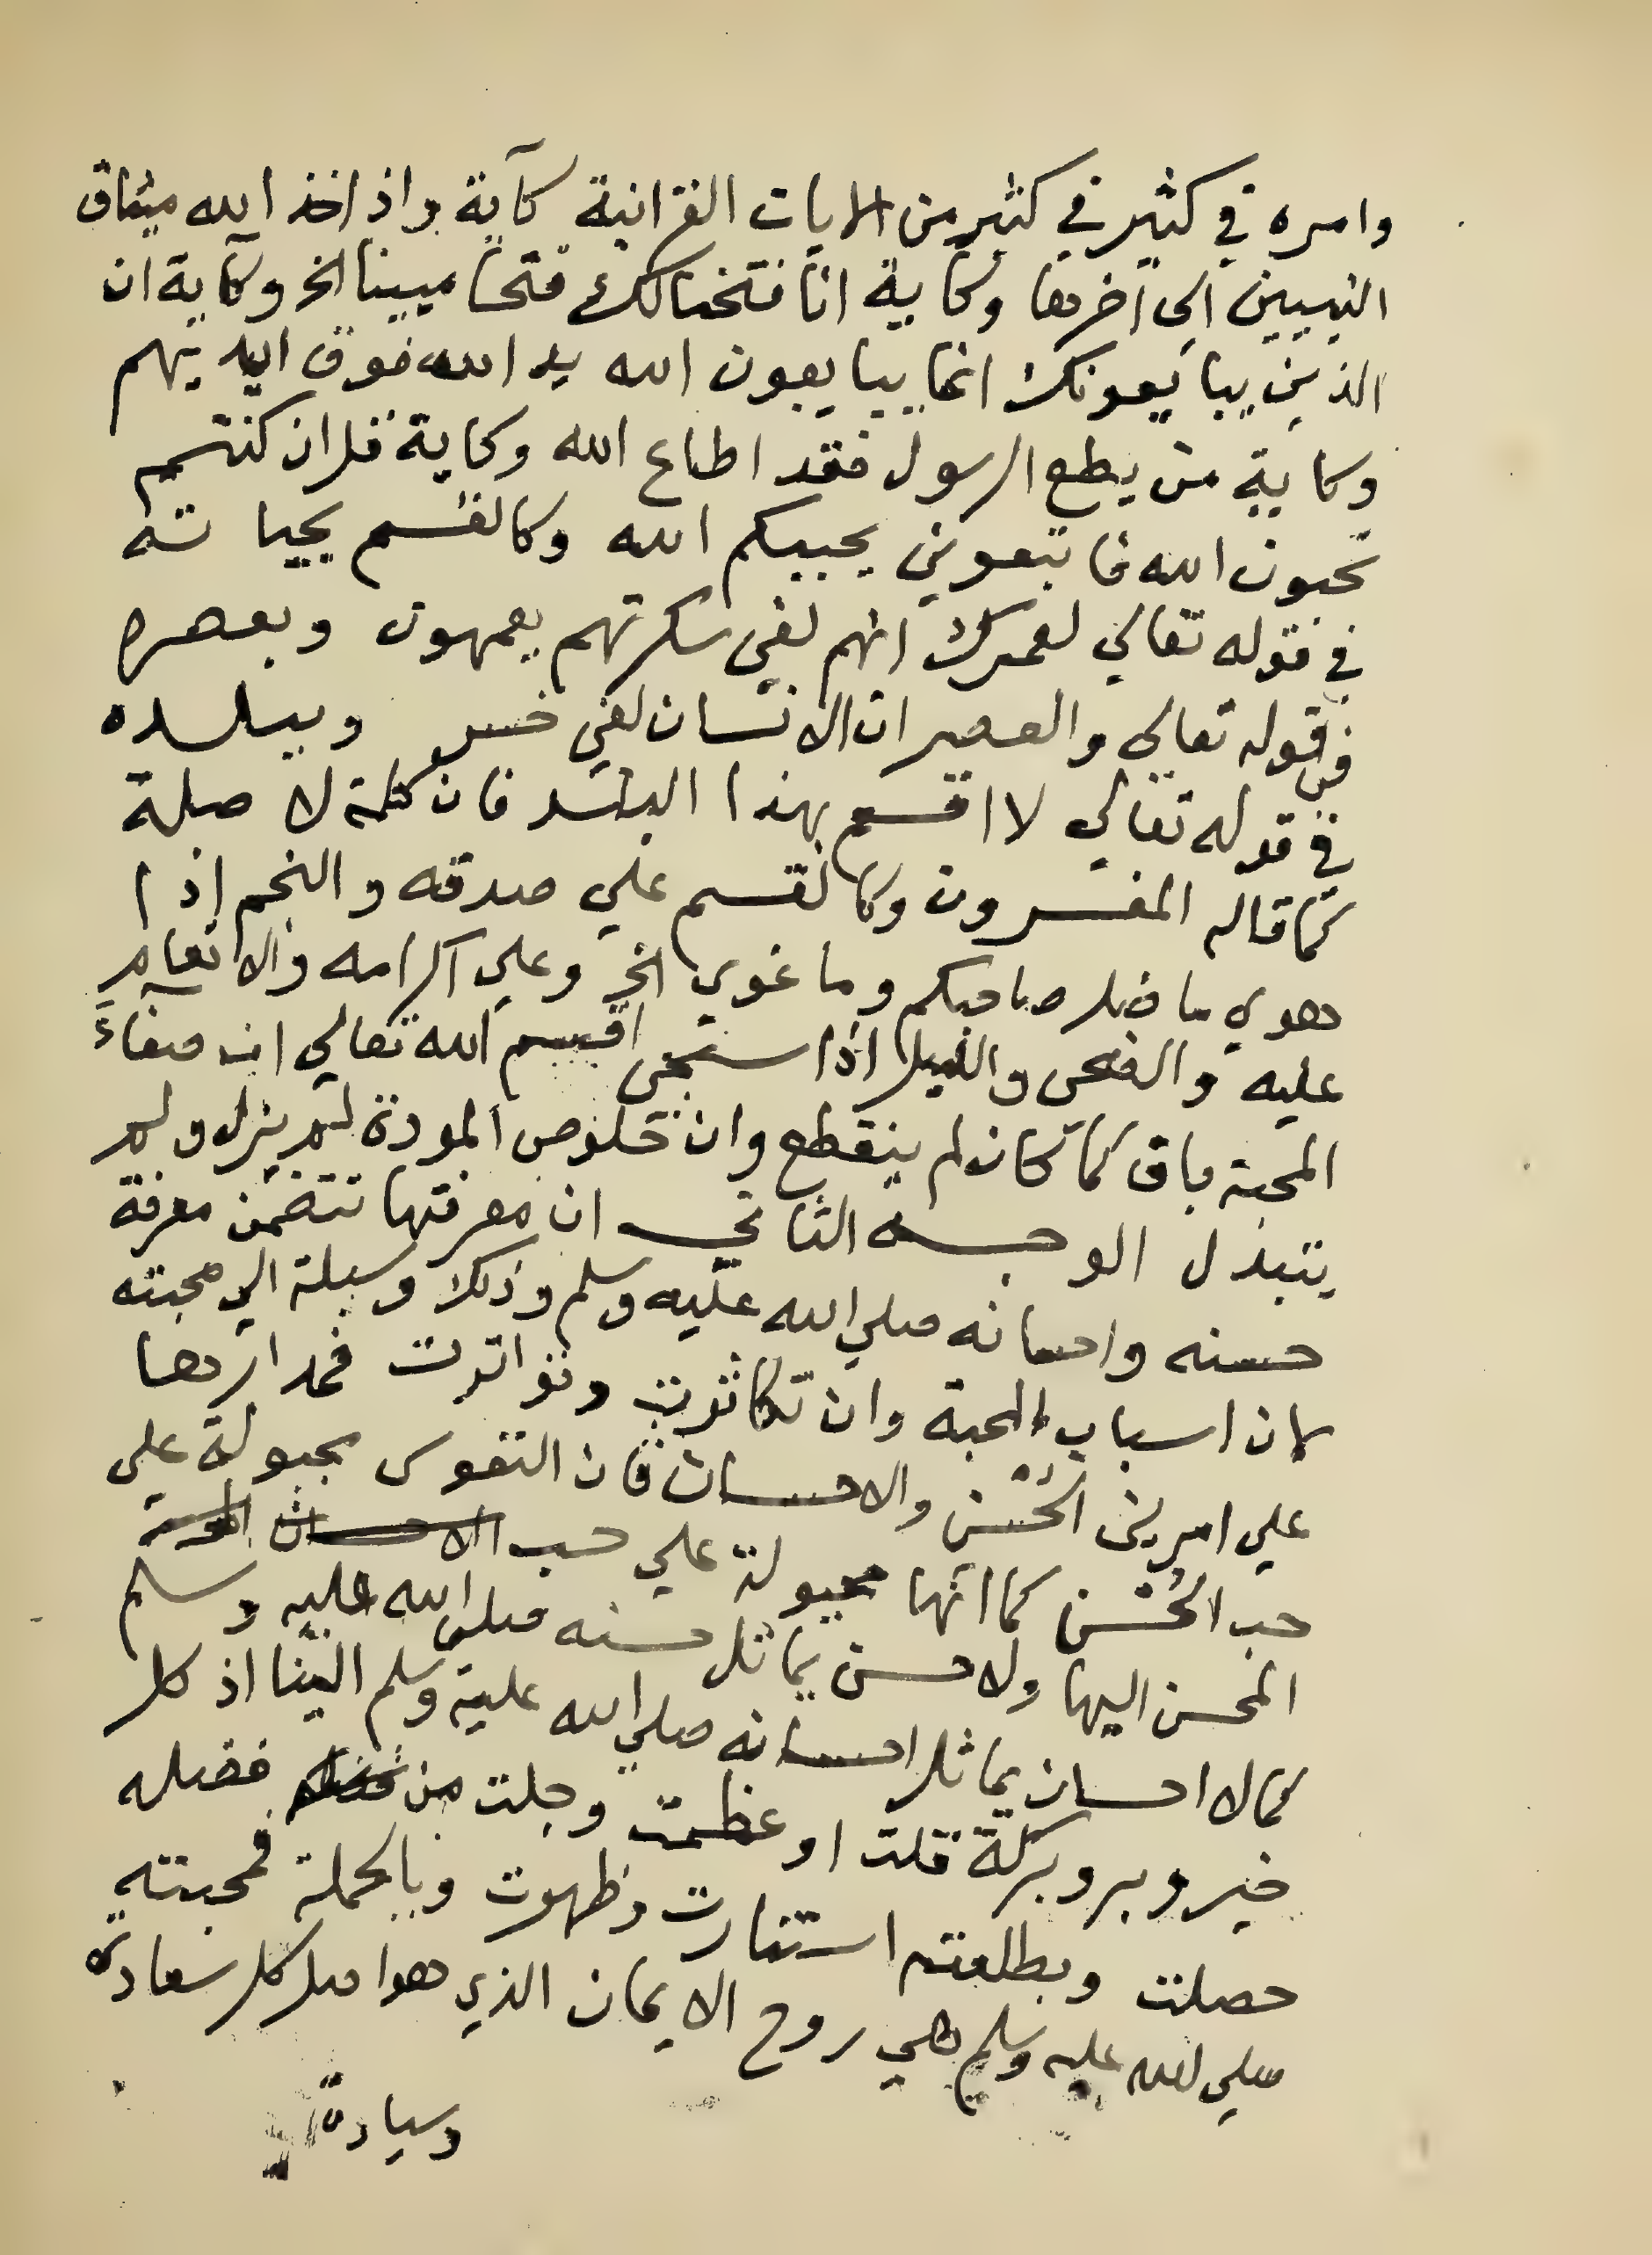 وامره في كثير في كثير من الايات القرانية كآية واذ اخذ الله ميثاق
النبيين الى آخرها وكاية انا فتحنا لك فتحا مبينا الخ وكآية ان
الذين يبايعونك انما يبايعون الله يد الله فوق ايديهم
وكاية من يطع الرسول فقد اطاع الله وكاية قل ان كنتم
تحبون الله فاتبعوني يحببكم الله وكالقسم بحياته
في قوله تعالي لعمرك انهم لفي سكرتهم يعمهون وبعصره
في قوله تعالي والعصر ان الانسان لفي خسر وببلده
في قوله تعالي لا اقسم بهذا البلد فان كلمة لا صلة
كما قاله المفسرون وكالقسم علي صدقه والنجم إذا
هوي ما ضل صاحبكم وما غوي الخ وعلي اكرامه والانعام
عليه والضحى والليل اذا سجى اقسم الله تعالي ان صفاءَ
المحبة باق كما كان لم ينقطع وان خلوص المودة لم يزل ولم
يتبدل الوجه الثاني ان معرفتها تتضمن معرفة
حسنه واحسانه صلي الله عليه وسلم وذلك وسيلة الي محبته
لان اسباب المحبة وان تكاثرت وتواترت فمدارها
علي امرين الحُسْن والاحسان فان النفوس مجبولة على
حب الحُسْن كما انها مجبولة علي حب الاحسان
المحسن اليها ولا حسن يماثل حسنه صلى الله عليه وسلم
كما لا احسان يماثل احسانه صلي الله عليه وسلم الينا اذ كل
خير وبر وبركة قلت او عظمت وجلت من فضله
حصلت وبطلعته استنارت وظهرت وبالجملة فمحبته
صلي الله عليه وسلم هي روح الايمان الذي هو اصل كل سعادة
وسيادة